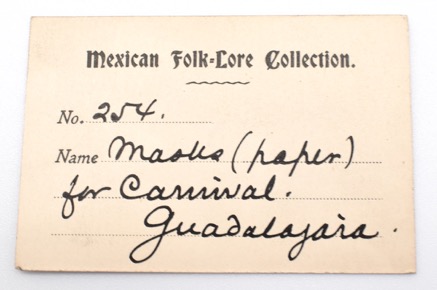 Mexican Folk-Lore Collection.
No. 254.
Name Masks (paper)
for Carnival.
Guadalajara.